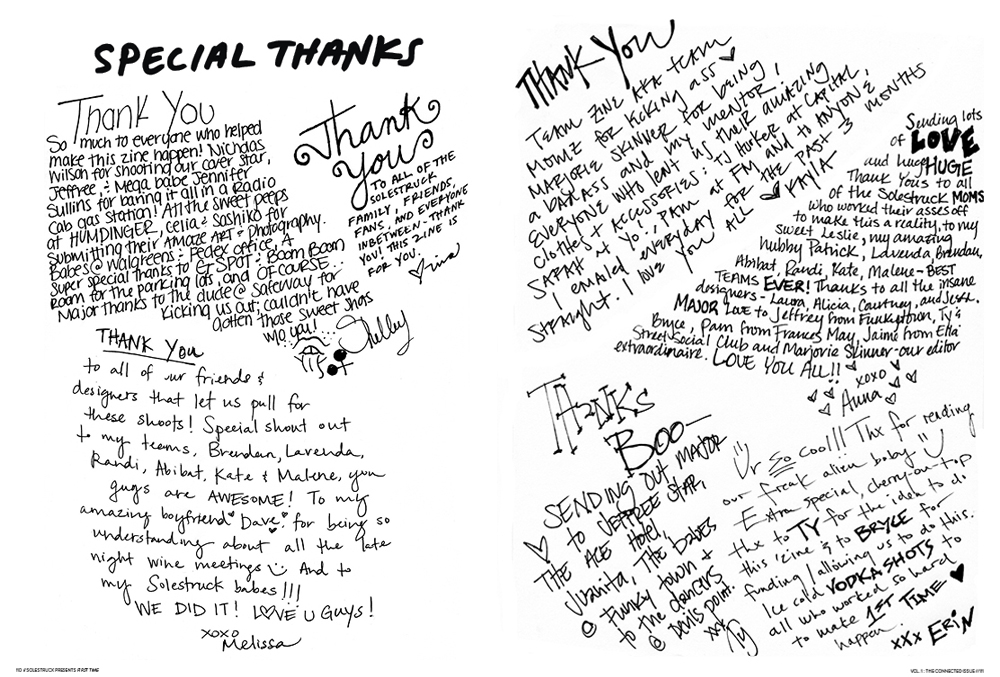 SPECIAL THANKS
Thank You
So much to everyone who helped
make this zine happen! Nicholas
Wilson for shooting our cover star,
Jeffree, & Mega babe Jennifer
Sullins for baring it all in a Radio
Cab gas station! All the sweet peeps
at HUMDINGER, Celia & Sashiko for
submitting their AMAZE ART & Photography.
Babes @ Walgreens & Fedex office, A
super special thanks to G SPOT & Boom Boom
Room for the parking lots, and OF COURSE...
Major thanks to the dude @ Safeway for
kicking us out; couldn't have
gotten those sweet shots
w/o you!
Shelby
Thank
You
TO ALL OF THE
SOLESTRUCK
FAMILY, FRIENDS,
FANS, AND EVERYONE
INBETWEEN - THANK
YOU! THIS ZINE IS
FOR YOU.
THANK YOU
to all of our friends &
designers that let us pull for
these shoots! Special shout out
to my teams, Brendan, Lavenda,
Randi, Abibat, Kate & Malene, you
guys are AWESOME! To my
amazing boyfriend Dave for being so
understanding about all the late
night wine meetings And to
my Solestruck babes!!!
WE DID IT! LOVE U GUYS!
xoxo
Melissa
110 // SOLESTRUCK PRESENTS FIRST TIME
THANK YOU
TEAM ZINE AKA TEAM
MOMZ FOR KICKING ASS
MARJORIE SKINNER FOR BEING
A BADASS AND MY MENTOR,
EVERYONE WHO LENT US THEIR AMAZING
CLOTHES + ACCESSORIES: TJ HORKER AT CAPITAL,
SARAH AT YO!, PAM AT FM AND TO ANYONE
I EMAILED EVERYDAY FOR THE PAST 3 MONTHS
STRAIGHT. I LOVE YOU ALL
KAYLA
Sending lots
of LOVE
and huge HUGE
Thank Yous to all
of the Solestruck MOMS
who worked their asses off
to make this a reality, to my
sweet Leslie, my amazing
hubby Patrick, Lavenda, Brendan,
Abibat, Randi, Kate, Malene - BEST
TEAMS EVER! Thanks to all the insane
designers - Laura, Alicia, Courtney, and Jesse.
MAJOR Love to Jeffrey from Funkytown, Ty &
Bryce, Pam from Frances May, Jaime from Ella
Street Social Club and Marjorie Skinner - our editor
extraordinaire. LOVE YOU ALL!!
xoxo
Anna
THANKS
BOO—
SENDING OUT MAJOR
TO JEFFREE STAR,
THE ACE HOTEL,
JUANITA, THE BABES
@ Funky town &
to the dancers
@ Devils point.
xxx
Ty
Ur So cool!!! Thx for reading
our freak alien baby
Extra special, cherry-on-top
thx to TY for the idea to do
this 'zine & to BRYCE for
funding / allowing us to do this.
Ice cold VODKA SHOTS to
all who worked so hard
to make 1ST TIME
happen.
xXx ERIN
VOL. 1: THE CONNECTED ISSUE // 111